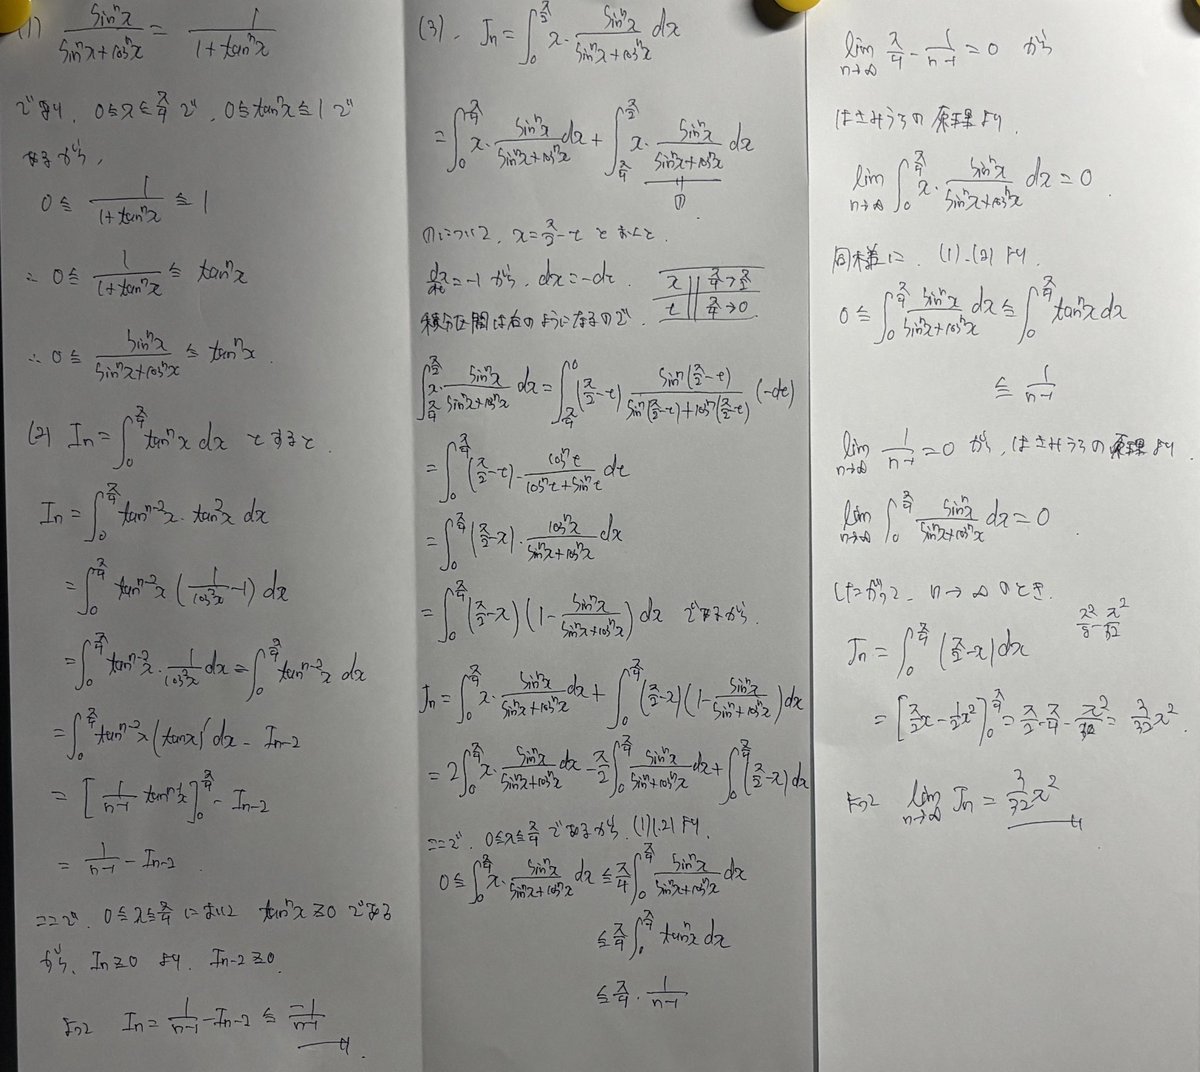 (1) sinⁿx/(sinⁿx+cosⁿx) = 1/(1+tanⁿx)
であり、0≦x≦π/4 で、0≦tanⁿx≦1 で
あるから、
0 ≦ 1/(1+tanⁿx) ≦ 1
∴ 0 ≦ 1/(1+tanⁿx) ≦ tanⁿx
∴ 0 ≦ sinⁿx/(sinⁿx+cosⁿx) ≦ tanⁿx.
(2) In = ∫₀^{π/4} tanⁿx dx とすると
In = ∫₀^{π/4} tanⁿ⁻²x・tan²x dx
= ∫₀^{π/4} tanⁿ⁻²x (1/cos²x - 1) dx
= ∫₀^{π/4} tanⁿ⁻²x・1/cos²x dx - ∫₀^{π/4} tanⁿ⁻²x dx
= ∫₀^{π/4} tanⁿ⁻²x (tanx)' dx - In-2
= [1/(n-1) tanⁿ⁻¹x]₀^{π/4} - In-2
= 1/(n-1) - In-2
ここで、0≦x≦π/4 において tanⁿx≧0 である
から、In≧0 より、In-2≧0.
よって In = 1/(n-1) - In-2 ≦ 1/(n-1)
(3). Jn = ∫₀^{π/2} x・sinⁿx/(sinⁿx+cosⁿx) dx
= ∫₀^{π/4} x・sinⁿx/(sinⁿx+cosⁿx) dx + ∫_{π/4}^{π/2} x・sinⁿx/(sinⁿx+cosⁿx) dx
①
①について、x=π/2-t とおくと、
dx/dt=-1 から、dx=-dt.
x | π/4→π/2
t | π/4→0
積分区間は右のようになるので、
∫_{π/4}^{π/2} x・sinⁿx/(sinⁿx+cosⁿx) dx = ∫_{π/4}^{0} (π/2-t) sinⁿ(π/2-t)/(sinⁿ(π/2-t)+cosⁿ(π/2-t)) (-dt)
= ∫₀^{π/4} (π/2-t)・cosⁿt/(cosⁿt+sinⁿt) dt
= ∫₀^{π/4} (π/2-x)・cosⁿx/(sinⁿx+cosⁿx) dx
= ∫₀^{π/4} (π/2-x)(1-sinⁿx/(sinⁿx+cosⁿx)) dx であるから、
Jn = ∫₀^{π/4} x・sinⁿx/(sinⁿx+cosⁿx) dx + ∫₀^{π/4} (π/2-x)(1-sinⁿx/(sinⁿx+cosⁿx)) dx
= 2∫₀^{π/4} x・sinⁿx/(sinⁿx+cosⁿx) dx - π/2 ∫₀^{π/4} sinⁿx/(sinⁿx+cosⁿx) dx + ∫₀^{π/4} (π/2-x) dx
ここで、0≦x≦π/4 であるから、(1),(2)より、
0 ≦ ∫₀^{π/4} x・sinⁿx/(sinⁿx+cosⁿx) dx ≦ π/4 ∫₀^{π/4} sinⁿx/(sinⁿx+cosⁿx) dx
≦ π/4 ∫₀^{π/4} tanⁿx dx
≦ π/4・1/(n-1)
lim_{n→∞} π/4・1/(n-1) = 0 から
はさみうちの原理より、
lim_{n→∞} ∫₀^{π/4} x・sinⁿx/(sinⁿx+cosⁿx) dx = 0
同様に、(1),(2)より、
0 ≦ ∫₀^{π/4} sinⁿx/(sinⁿx+cosⁿx) dx ≦ ∫₀^{π/4} tanⁿx dx
≦ 1/(n-1)
lim_{n→∞} 1/(n-1) = 0 から、はさみうちの原理より、
lim_{n→∞} ∫₀^{π/4} sinⁿx/(sinⁿx+cosⁿx) dx = 0
したがって、n→∞のとき、
π²/8-π²/32
Jn = ∫₀^{π/4} (π/2-x) dx
= [π/2 x - 1/2 x²]₀^{π/4} = π/2・π/4 - π²/32 = 3/32 π².
よって lim_{n→∞} Jn = 3/32 π²